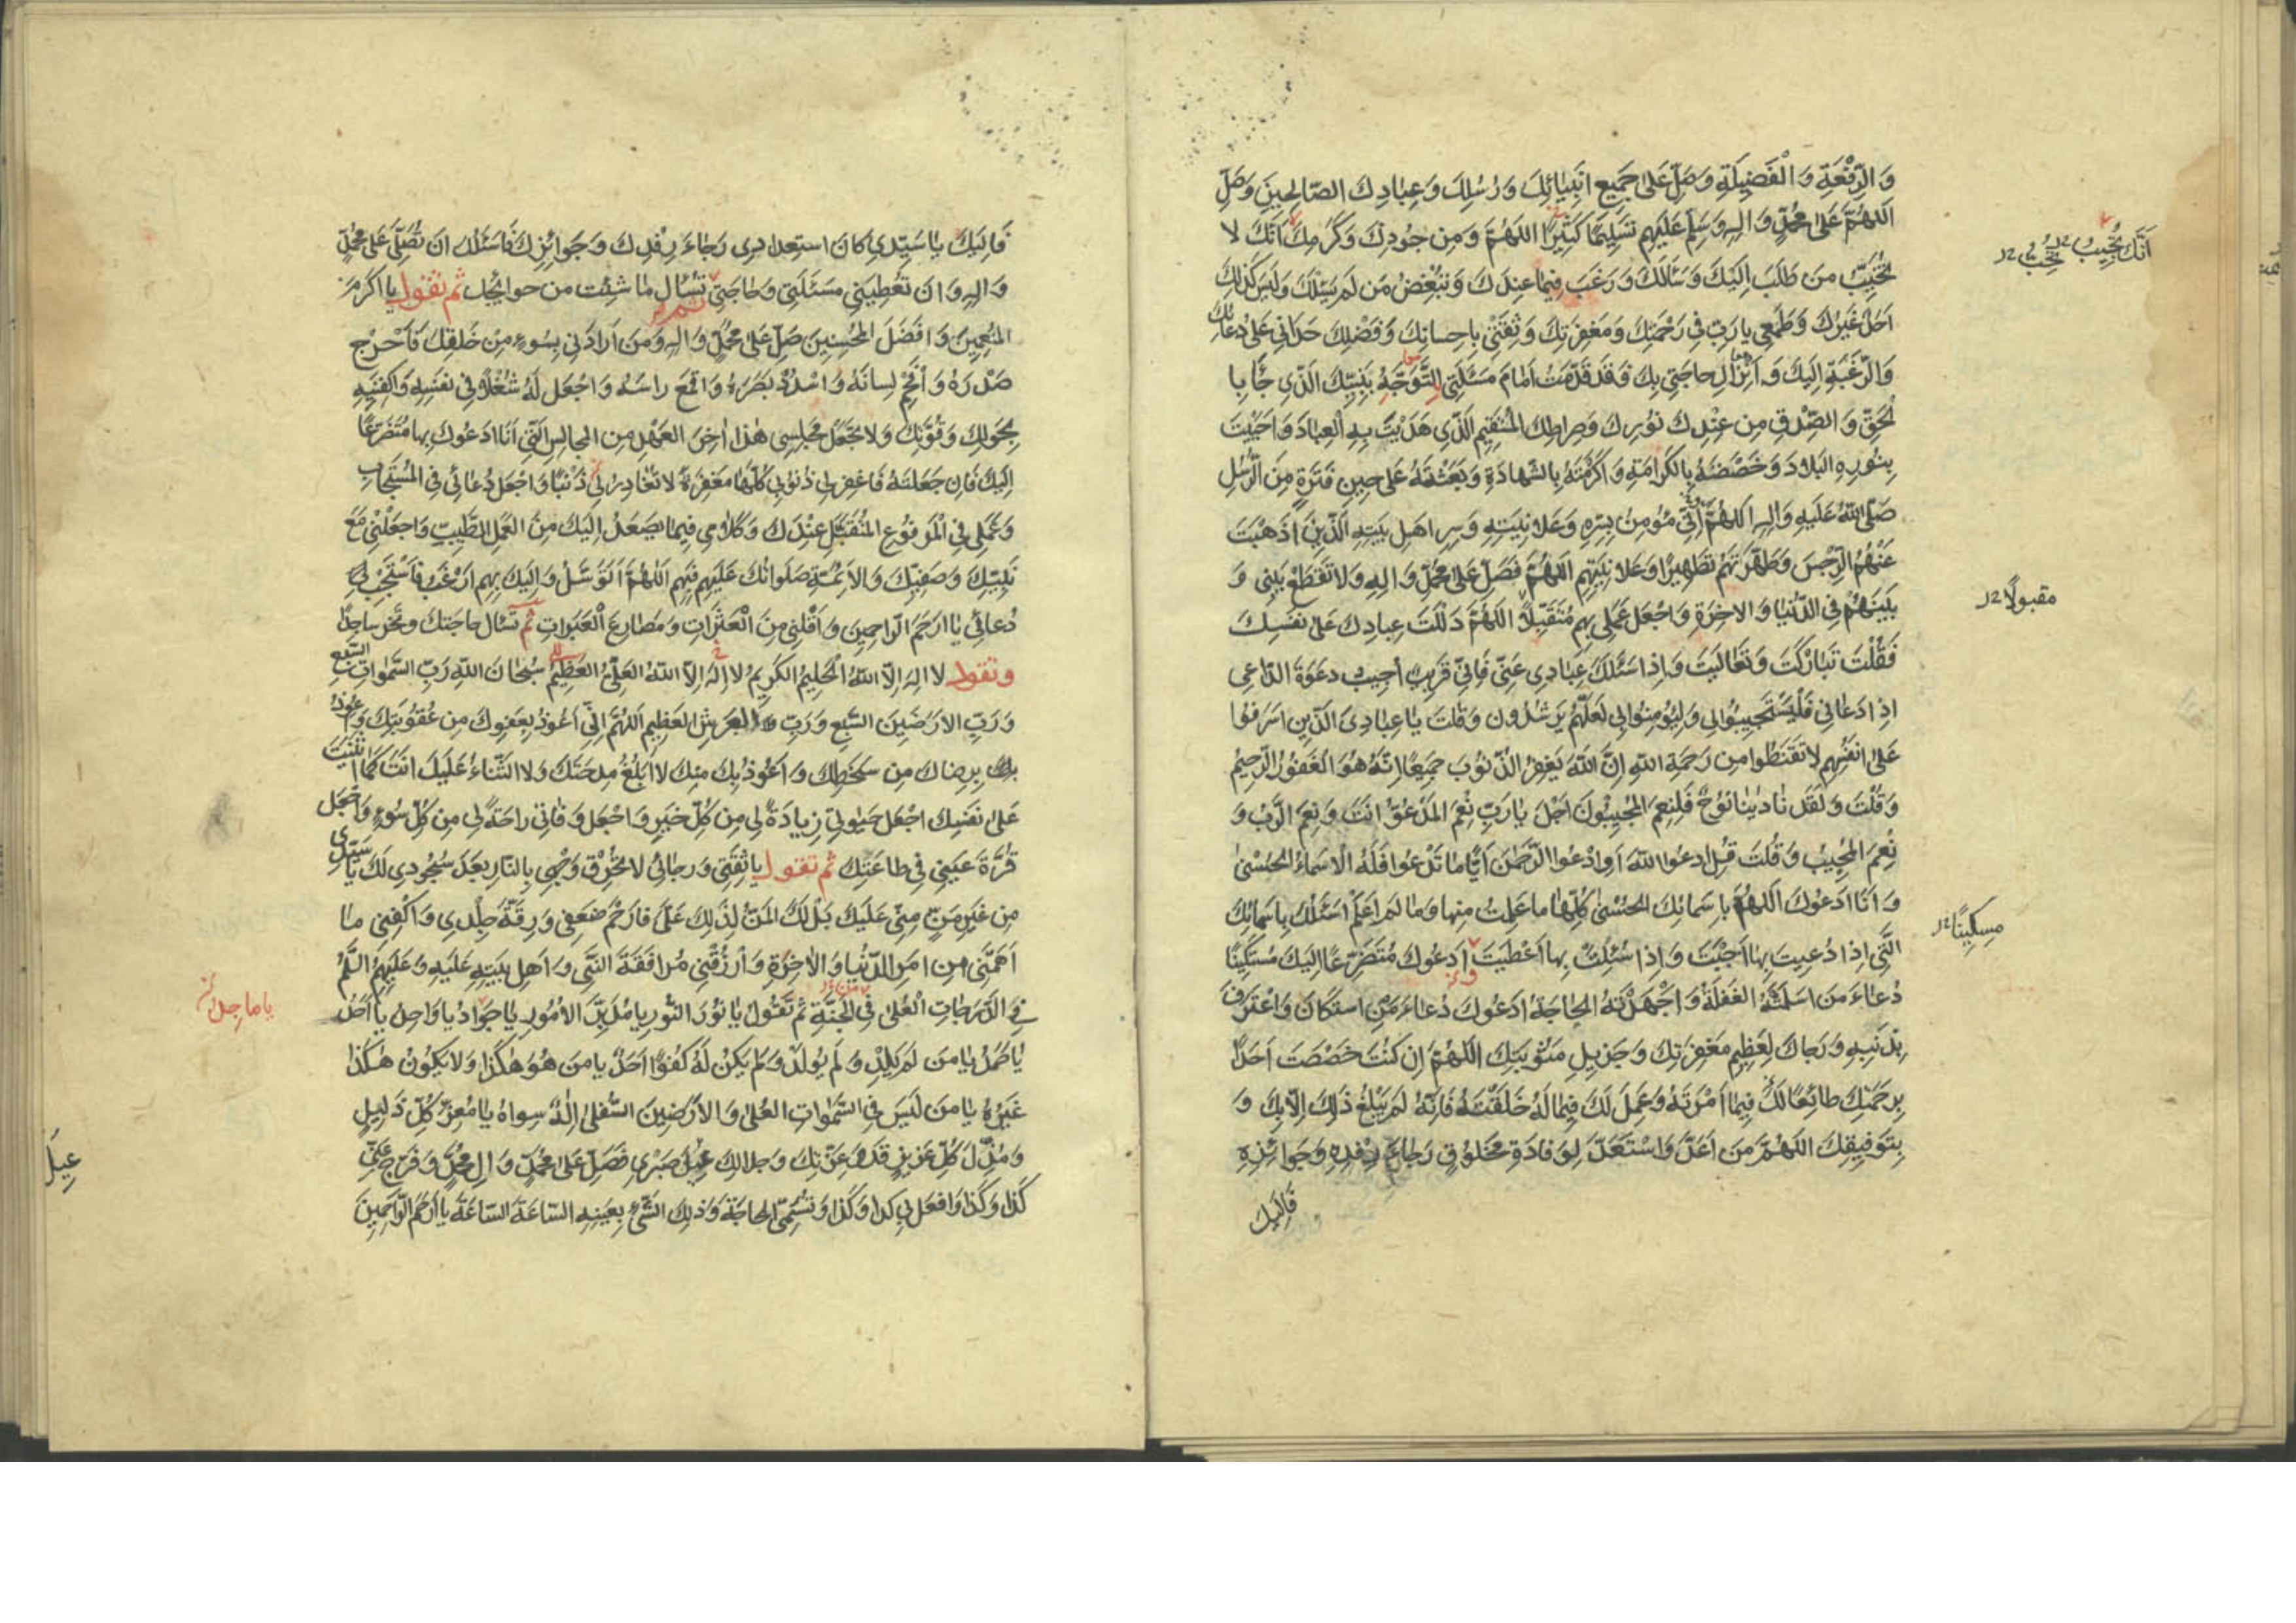 وَالرِّفْعَةِ وَالْفَضِيلَةِ وَصَلِّ عَلىٰ جَمِيعِ انْبِيٰائِكَ وَرُسُلِكَ وَعِبٰادِكَ الصّالِحينَ وَصَلِّ
اللّهُمَّ عَلىٰ مُحَمَّدٍ وَالِهِ وَسَلِّمْ عَلَيْهِم تَسْلِيمًا كَثِيرًا اللّهُمَّ وَمِن جُودِكَ وَكَرَمِكَ انَّكَ لا
تُخَيِّبُ مَن طَلَبَ اِلَيْكَ وَسَئَلَكَ وَرَغِبَ فِيمٰا عِندَكَ وَتُبْغِضُ مَن لَم يَسْئَلْكَ وَلَيْسَ كَذٰلِكَ
اَحَدٌ غَيْرُكَ وَطَمَعِي يا رَبِّ فِي رَحْمَتِكَ وَمَغْفِرَتِكَ وَثِقَتِي بِاِحسانِكَ وَفَضْلِكَ حَدَانِي عَلىٰ دُعائِكَ
وَالرَّغْبَةِ اِلَيْكَ وَاِنْزالِ حاجَتِي بِكَ وَقَد قَدَّمْتُ اَمٰامَ مَسْئَلَتِي التَّوَجُّهَ بِنَبِيِّكَ الَّذِي جٰاءَ بِا
لْحَقِّ وَالصِّدْقِ مِن عِنْدِكَ نُورِكَ وَصِراطِكَ المُسْتَقِيمِ الَّذِي هَدَيْتَ بِهِ الْعِبادَ وَاَحْيَيْتَ
بِنُورِهِ البِلادَ وَخَصَصْتَهُ بِالكَرامَةِ وَاَكْرَمْتَهُ بِالشَّهادَةِ وَبَعَثْتَهُ عَلىٰ حِينِ فَتْرَةٍ مِنَ الرُّسُلِ
صَلَّى اللّهُ عَلَيْهِ وَالِهِ اللّهُمَّ اِنّي مُؤمِنٌ بِسِرِّهِ وَعَلانِيَتِهِ وَسِرِّ اَهلِ بَيْتِهِ الَّذِينَ اَذْهَبْتَ
عَنْهُمُ الرِّجْسَ وَطَهَّرْتَهُمْ تَطْهِيرًا وَعَلانِيَتِهِم اللّهُمَّ فَصَلِّ عَلىٰ مُحَمَّدٍ وَالِهِ وَلا تَقْطَعْ بَيْنِي وَ
بَيْنَهُمْ فِي الدُّنْيٰا وَالاخِرَةِ وَاجْعَلْ عَمَلِي بِهِم مُتَقَبَّلاً اللّهُمَّ دَلَلْتَ عِبادَكَ عَلىٰ نَفْسِكَ
فَقُلْتَ تَبارَكْتَ وَتَعٰالَيْتَ وَاِذا سَئَلَكَ عِبٰادِي عَنّي فَاِنّي قَرِيبٌ اُجِيبُ دَعْوَةَ الدّاعِي
اِذا دَعٰانِي فَلْيَسْتَجِيبُوا لِي وَلْيُؤمِنُوا بِي لَعَلَّهُمْ يَرْشُدُونَ وَقُلْتَ يٰا عِبٰادِيَ الَّذِينَ اَسْرَفُوا
عَلىٰ انْفُسِهِم لا تَقْنَطُوا مِن رَحْمَةِ اللّهِ اِنَّ اللّهَ يَغْفِرُ الذُّنُوبَ جَمِيعًا اِنَّهُ هُوَ الْغَفُورُ الرَّحِيمُ
وَقُلْتَ وَلَقَد نٰادٰينٰا نُوحٌ فَلَنِعْمَ المُجِيبُونَ اَجَلْ يٰا رَبِّ نِعْمَ المَدْعُوُّ انْتَ وَنِعْمَ الرَّبُّ وَ
نِعْمَ المُجِيبُ وَقُلْتَ قُلِ ادْعُوا اللّهَ اَوِ ادْعُوا الرَّحْمٰنَ اَيًّا ما تَدْعُوا فَلَهُ الاَسْمٰاءُ الحُسْنىٰ
وَانَا اَدْعُوكَ اللّهُمَّ بِاسْمائِكَ الحُسْنىٰ كُلِّهٰا ما عَلِمْتُ مِنها وَما لَم اَعْلَمْ اَسْئَلُكَ بِاسْمائِكَ
الَّتِي اِذا دُعِيتَ بِهٰا اَجَبْتَ وَاِذا سُئِلْتَ بِها اَعْطَيْتَ اَدْعُوكَ مُتَضَرِّعًا اِلَيْكَ مُسْتَكِينًا
دُعٰاءَ مَن اَسْلَمَتْهُ الغَفْلَةُ وَاَجْهَدَتْهُ الحٰاجَةُ اَدْعُوكَ دُعٰاءَ مَنِ اسْتَكٰانَ وَاعْتَرَفَ
بِذَنْبِهِ وَرَجاكَ لِعَظِيمِ مَغْفِرَتِكَ وَجَزِيلِ مَثُوبَتِكَ اللّهُمَّ اِن كُنْتَ خَصَصْتَ اَحَدًا
بِرَحْمَتِكَ طائِعًا لَكَ فِيمٰا اَمَرْتَهُ وَعَمِلَ لَكَ فِيمٰا لَهُ خَلَقْتَهُ فَاِنَّهُ لَم يَبْلُغْ ذٰلِكَ اِلّا بِكَ وَ
بِتَوْفِيقِكَ اللّهُمَّ مَن اَعَدَّ وَاسْتَعَدَّ لِوِفادَةِ مَخلُوقٍ رَجٰاءَ رِفْدِهِ وَجَوائِزِهِ
فَاِلَيْكَ
مقبولاً
مسكينًا
فَاِلَيْكَ يٰا سَيِّدِي كانَ اسْتِعدادِي رَجٰاءَ رِفْدِكَ وَجَوائِزِكَ فَاَسْئَلُكَ اَن تُصَلِّيَ عَلىٰ مُحَمَّدٍ
وَالِهِ وَاَن تُعْطِيَنِي مَسْئَلَتِي وَحاجَتِي تَسْئَال ما شِئْتَ من حوائجك ثم تقول يا اَكرَمَ
المُنْعِمِينَ وَاَفْضَلَ المُحْسِنِينَ صَلِّ عَلىٰ مُحَمَّدٍ وَالِهِ وَمَن اَرادَنِي بِسُوءٍ مِنْ خَلقِكَ فَاَحْرِجْ
صَدْرَهُ وَاَفْحِمْ لِسانَهُ وَاسْدُدْ بَصَرَهُ وَاقْمَعْ راسَهُ وَاجْعَل لَهُ شُغْلاً فِي نَفْسِهِ وَاكْفِنِيهِ
بِحَوْلِكَ وَقُوَّتِكَ وَلا تَجْعَلْ مَجْلِسِي هٰذا اٰخِرَ العَهْدِ مِنَ المَجالِسِ الَّتِي اَنَا اَدْعُوكَ بِها مُتَضَرِّعًا
اِلَيْكَ فَاِن جَعَلْتَهُ فَاغْفِر لِي ذُنُوبِي كُلَّهٰا مَغْفِرَةً لا تُغٰادِرُ لِي ذَنْبًا وَاجْعَلْ دُعٰائِي فِي المُسْتَجٰابِ
وَعَمَلِي فِي الْمَرْفُوعِ المُتَقَبَّلِ عِنْدَكَ وَكَلامِي فِيمٰا يَصْعَدُ اِلَيْكَ مِنَ العَمَلِ الطَّيِّبِ وَاجْعَلْنِي مَعَ
نَبِيِّكَ وَصَفِيِّكَ وَالاَئِمَّةِ صَلَواتُكَ عَلَيْهِم فَبِهِم اللّهُمَّ اَتَوَسَّلُ وَاِلَيْكَ بِهِم اَرْغَبُ فَاسْتَجِبْ لِي
دُعائِي يٰا اَرْحَمَ الرّاحِمِينَ وَاَقْلِنِي مِنَ الْعَثَراتِ وَمَصٰارِعَ الْعَبَراتِ ثُمَّ تَسْئَال حاجَتَكَ وَتَخِرُّ ساجِدًا
وتقول لا اِلهَ اِلاّ اللّهُ الْحَلِيمُ الكَرِيمُ لا اِلهَ اِلاّ اللّهُ العَلِيُّ العَظِيمُ سُبْحٰانَ اللّهِ رَبِّ السَّمٰواتِ السَّبْعِ
وَرَبِّ الاَرَضِينَ السَّبْعِ وَرَبِّ العَرْشِ العَظِيمِ اللّهُمَّ اِنّي اَعُوذُ بِعَفْوِكَ مِن عُقُوبَتِكَ وَاَعُوذُ
بِرِضاكَ مِن سَخَطِكَ وَاَعُوذُ بِكَ مِنكَ لا اَبْلُغُ مِدْحَتَكَ وَلا الثَّناءَ عَلَيْكَ انْتَ كَمٰا اَثْنَيْتَ
عَلىٰ نَفْسِكَ اجْعَلْ حَيٰوتِي زِيادَةً لِي مِن كُلِّ خَيْرٍ وَاجْعَل وَفٰاتِي راحَةً لِي مِن كُلِّ سُوءٍ وَاجْعَل
قُرَّةَ عَيْنِي فِي طاعَتِكَ ثم تقول يا ثِقَتِي وَرَجٰائِي لا تُحْرِقْ وَجْهِي بِالنّارِ بَعْدَ سُجُودِي لَكَ يٰا سَيِّدِي
مِن غَيْرِ مَنٍّ مِنّي عَلَيْكَ بَلْ لَكَ المَنُّ لِذٰلِكَ عَلَيَّ فَارْحَمْ ضَعْفِي وَرِقَّةَ جِلْدِي وَاكْفِنِي مٰا
اَهَمَّنِي مِن اَمرِ الدُّنْيٰا وَالاٰخِرَةِ وَارْزُقْنِي مُرافَقَةَ النَّبِيِّ وَاَهلِ بَيْتِهِ عَلَيْهِ وَعَلَيْهِمُ السَّلَمُ
فِي الدَّرَجاتِ الْعُلىٰ فِي الجَنَّةِ ثُمَّ تَقُولُ يٰا نُورَ النُّورِ يا مُدَبِّرَ الاُمُورِ يٰا جَوادُ يا واحِدُ يا اَحَدُ
يٰا صَمَدُ يٰا مَن لَم يَلِدْ وَلَم يُولَدْ وَلَم يَكُن لَهُ كُفُوًا اَحَدٌ يا مَن هُوَ هٰكَذا وَلا يَكُونُ هٰكَذا
غَيْرُهُ يٰا مَن لَيْسَ فِي السَّمٰواتِ العُلىٰ وَالاَرَضِينَ السُّفلىٰ اِلهٌ سِواهُ يٰا مُعِزَّ كُلِّ ذَلِيلٍ
وَمُذِلَّ كُلِّ عَزِيزٍ قَد وَعِزَّتِكَ وَجَلالِكَ عِيلَ صَبْرِي فَصَلِّ عَلىٰ مُحَمَّدٍ وَالِ مُحَمَّدٍ وَفَرِّج عَنّي
كَذا وَكَذا وَافعَل بِي كَذا وَكَذا وَتُسَمّي الحاجَةَ وَذٰلِكَ الشَّيْءَ بِعَيْنِهِ السّاعَةَ السّاعَةَ يا اَرْحَمَ الرّاحِمِينَ
يا ماجِدُ
عِيلَ